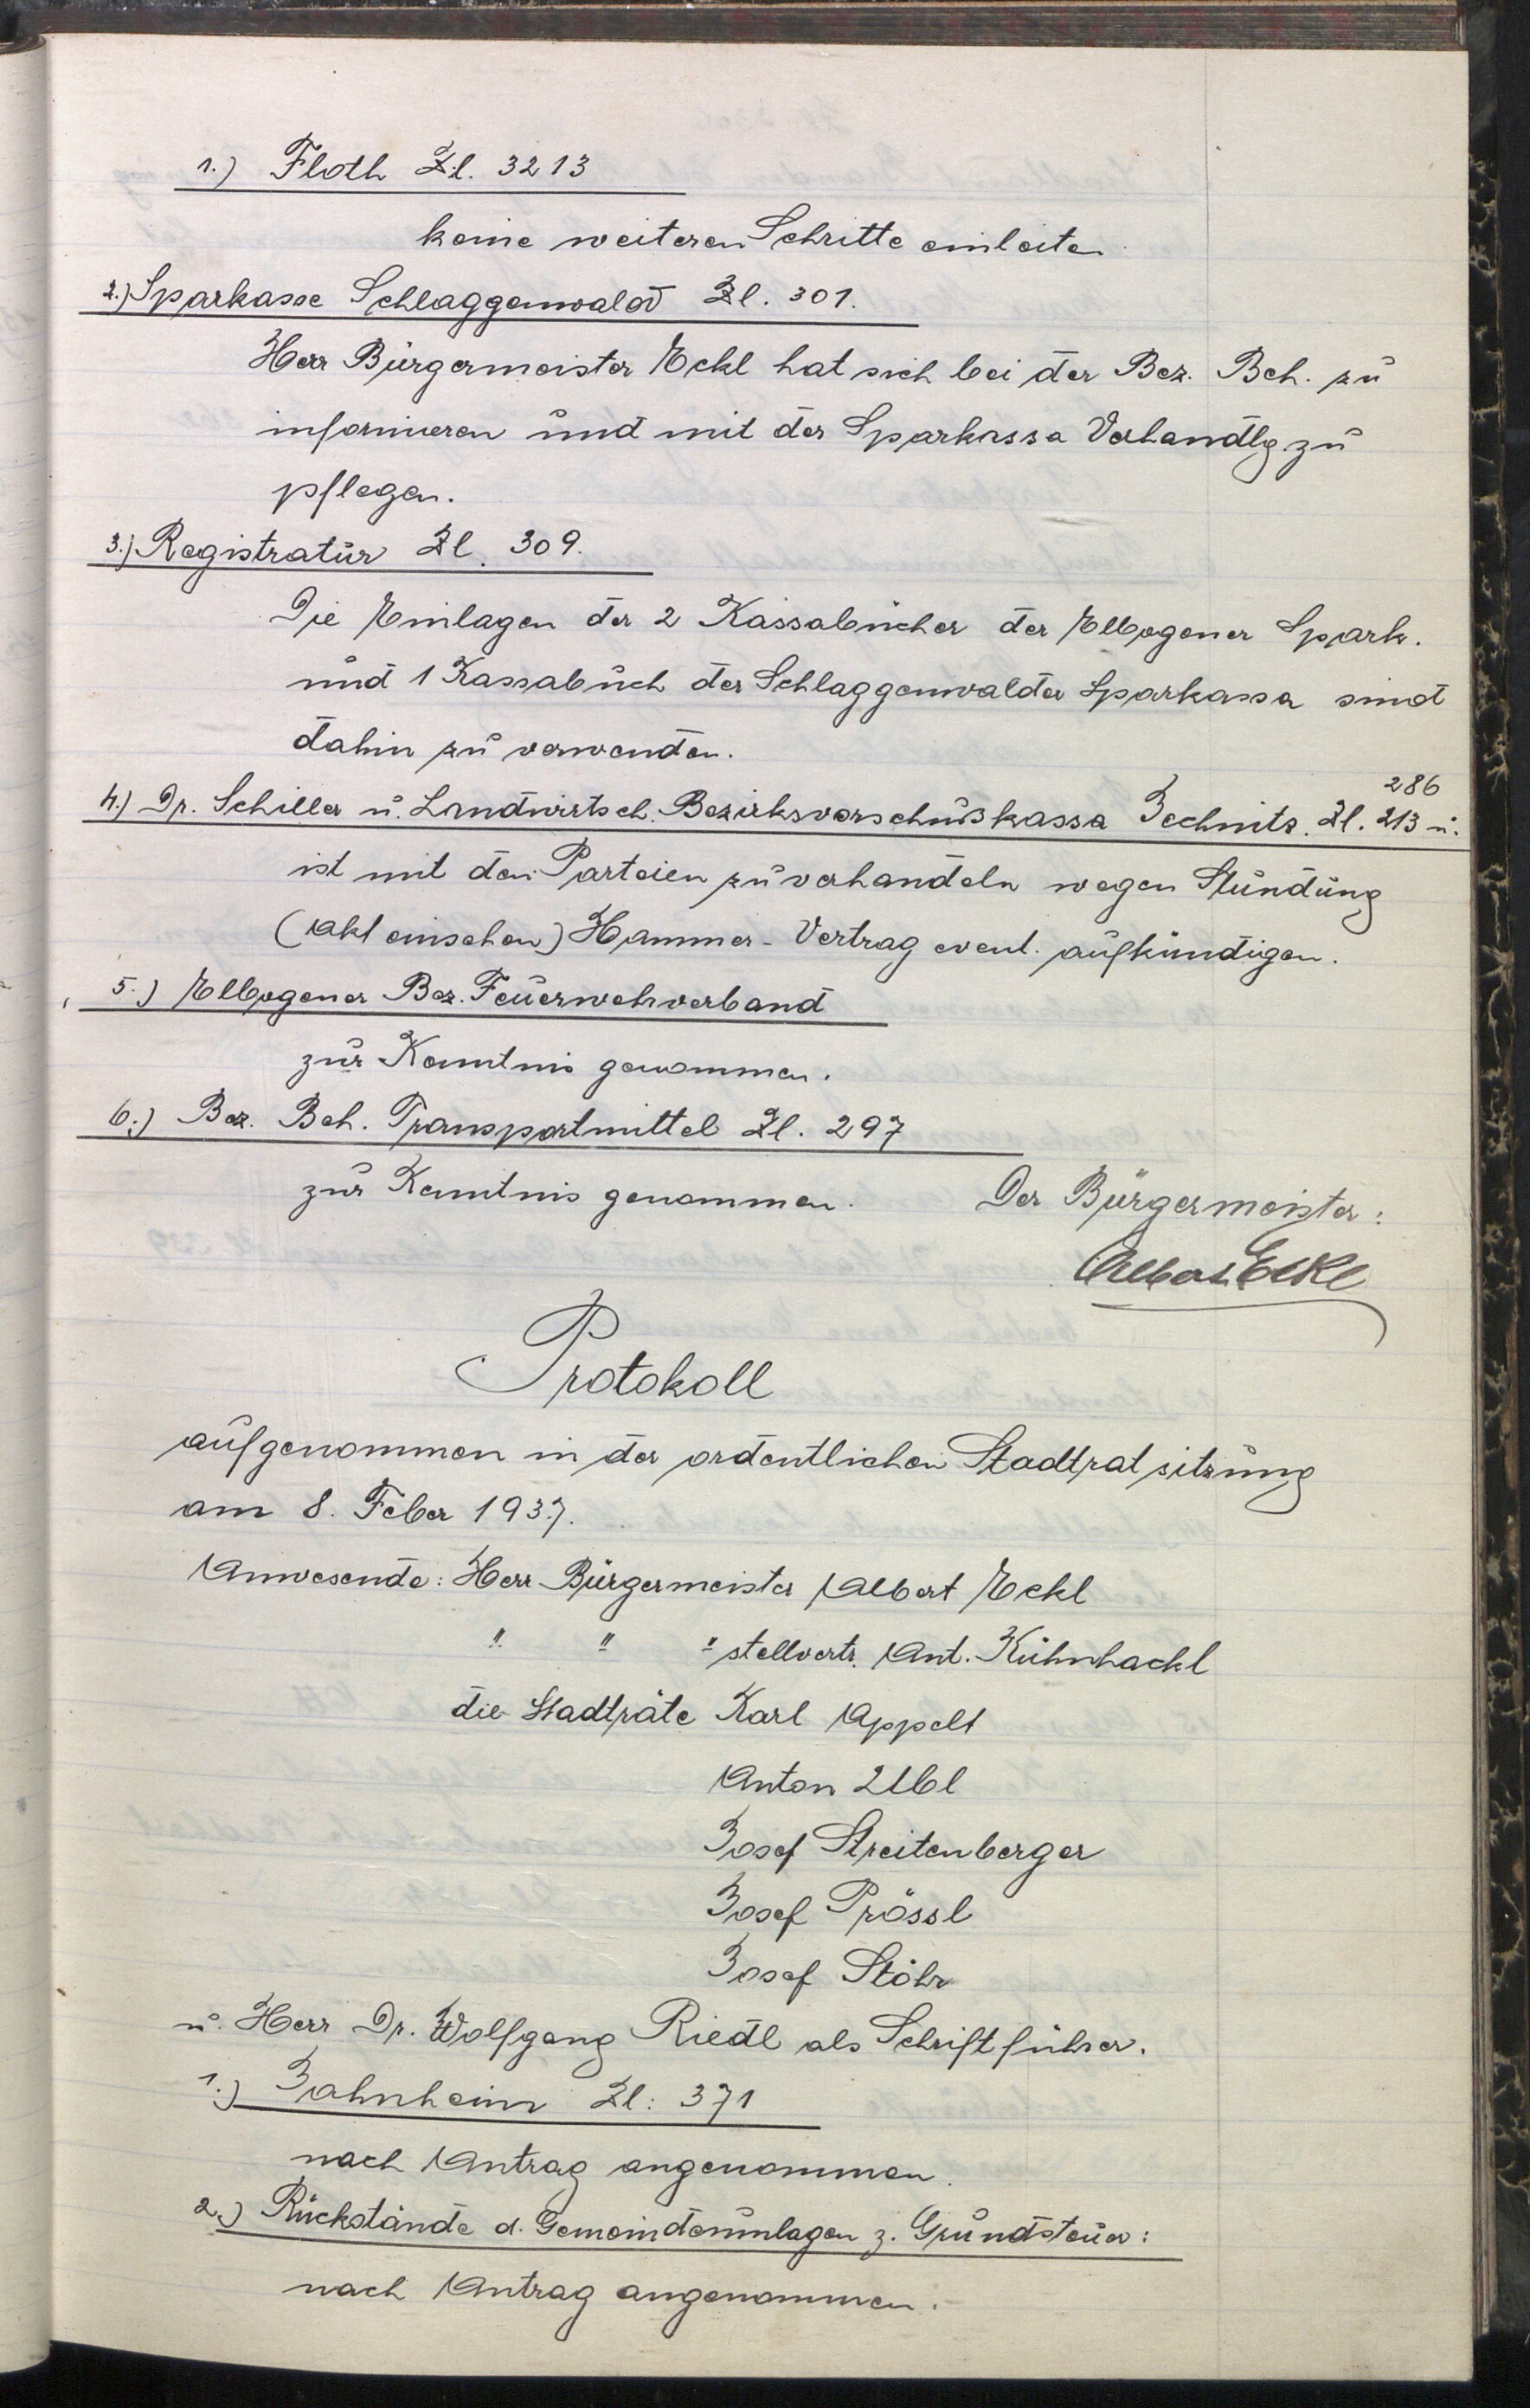 1.) Floth Zl. 3213
keine weiteren Schritte einleiten
2.) Sparkasse Schlaggenwald Zl. 301.
Herr Bürgermeister Eckl hat sich bei der Bez. Beh. zu
informieren und mit der Sparkassa Verhandlg. zu
pflegen.
3.) Registratur Zl. 309.
Die Einlagen der 2 Kassabücher der Elbogener Spark.
und 1 Kassabuch der Schlaggenwalder Sparkassa sind
dahin zu verwenden.
286
4.) Dr. Schiller u. Landwirtsch. Bezirksvorschußkassa Jechnitz. Zl. 213 u.
ist mit den Parteien zu verhandeln wegen Stundung
(Akt einsehen) Hammer-Vertrag event. aufkündigen.
5.) Elbogener Bez. Feuerwehrverband
zur Kenntnis genommen.
6.) Bez. Beh. Transportmittel Zl. 297
zur Kenntnis genommen. Der Bürgermeister:
Albert Eckl
Protokoll
aufgenommen in der ordentlichen Stadtratsitzung
am 8. Feber 1937.
Anwesende: Herr Bürgermeister Albert Eckl
" " " stellvertr. Ant. Kühnhackl
die Stadträte Karl Appelt
Anton Ubl
Josef Streitenberger
Josef Prössl
Josef Stöhr
u. Herr Dr. Wolfgang Riedl als Schriftführer.
1.) Jahnheim Zl: 371
nach Antrag angenommen.
2.) Rückstände d. Gemeindeumlagen z. Grundsteuer:
nach Antrag angenommen.